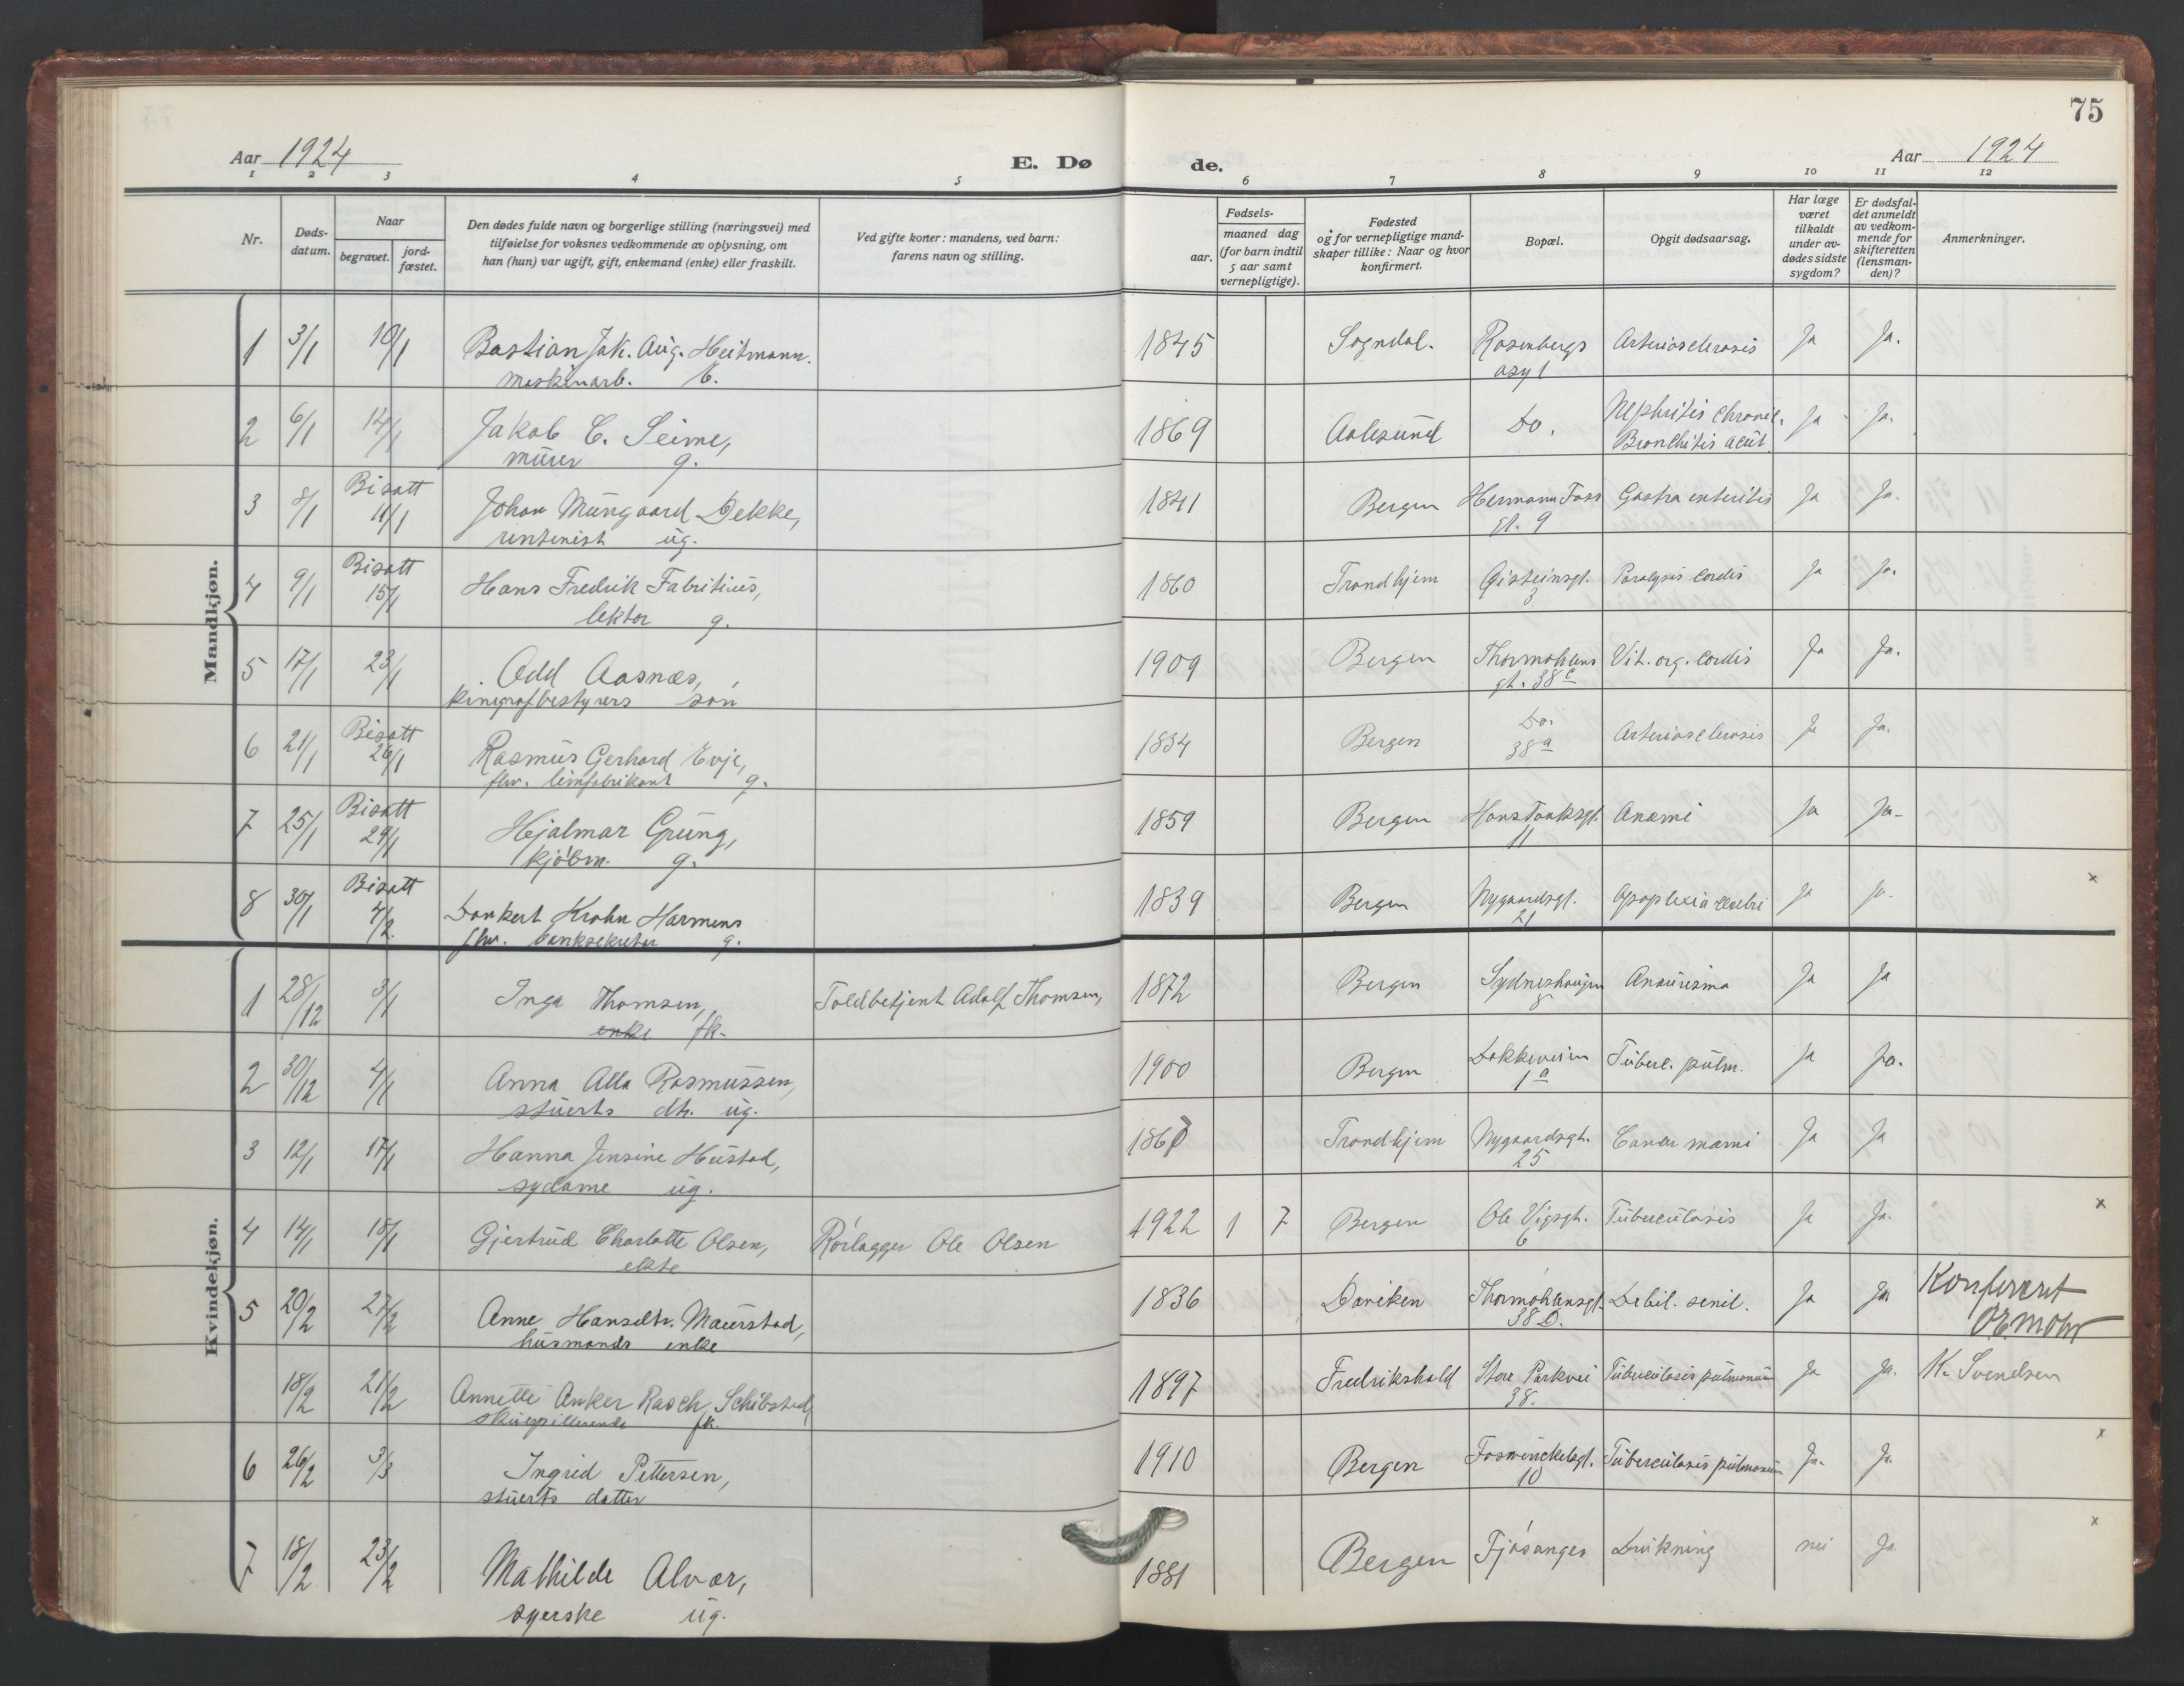 75
Aar 1924
E. Dø de.
Aar 1924
1 2 3 4 5 6 7 8 9 10 11 12
Nr.
Døds-
datum.
Naar
begravet.
jord-
fæstet.
Den dødes fulde navn og borgerlige stilling (næringsvei) med
tilføielse for voksnes vedkommende av oplysning, om
han (hun) var ugift, gift, enkemand (enke) eller fraskilt.
Ved gifte koner: mandens, ved barn:
farens navn og stilling.
Fødsels-
aar.
maaned dag
(for barn indtil
5 aar samt
vernepligtige).
Fødested
og for vernepligtige mand-
skaper tillike: Naar og hvor
konfirmert.
Bopæl.
Opgit dødsaarsag.
Har læge
været
tilkaldt
under av-
dødes sidste
sygdom?
Er dødsfal-
det anmeldt
av vedkom-
mende for
skifteretten
(lensman-
den)?
Anmerkninger.
Mandkjøn.
1 3/1 10/1 Bastian Jak. Aug. Heitmann. 1845 Sogndal. Rosenbergs Arteriosclerosis Ja Ja.
maskinarb. asyl
2 6/1 14/1 Jakob C. Seime, 1869 Aalesund Do. Nephritis chronic. Ja Ja.
murer g. Bronchitis acut.
3 8/1 Bisatt 11/1 Johan Mungaard Dekke, 1841 Bergen Hermann Foss Gastra enteritis Ja Ja.
rentenist ug. gt. 9
4 9/1 Bisatt 15/1 Hans Fredrik Fabritius, 1860 Trondhjem Gisteinsgt. Paralysis cordis Ja Ja.
lektor g. 3
5 17/1 23/1 Odd Aasnæs, 1909 Bergen Thormøhlens Vit. org. cordis Ja Ja.
kinografbestyrers søn gt. 38c
6 21/1 Bisatt 26/1 Rasmus Gerhard Evje, 1834 Bergen Do. Arteriosclerosis Ja Ja.
fhv. limfabrikant g. 38a
7 25/1 Bisatt 29/1 Hjalmar Grung, 1859 Bergen Hans Tanksgt. Anæmi Ja Ja.
kjøbm. g. 11
8 30/1 Bisatt 4/2. Dankert Krohn Harmens 1839 Bergen Nygaardsgt. Apoplexia cerebri Ja Ja. x
fhv. banksekretær g. 21
Kvindekjøn.
1 28/12 3/1 Inga Thomsen, Toldbetjent Adolf Thomsen, 1872 Bergen Sydneshaugen Anaurisma Ja Ja
enke fk. 8
2 30/12 4/1 Anna Alla Rasmussen, 1900 Bergen Dokkeveien Tuberc. pulm. Ja Ja.
stuerts dtr. ug. 1a
3 12/1 17/1 Hanna Jensine Hustad, Trondhjem Nygaardsgt. Cancer mami Ja Ja
sydame ug. 25
4 14/1 18/1 Gjertrud Charlotte Olsen, Rørlægger Ole Olsen 1922 1 7 Bergen Ole Vigsgt. Tuberculosis Ja Ja. x
ekte 6
5 20/2 27/2 Anne Hansdtr. Maurstad, 1836 Daviken Thormøhlensgt. Debil. senil. Ja Ja Konfereret
husmands enke 38 D. O.E. Mohr
18/2 21/2 Annette Anker Rasch Schibsted, 1897 Fredrikshald Store Parkvei Tuberculosis pulmonum Ja Ja. K. Svendsen
skuespillerinde fk. 38.
6 26/2 3/3 Ingrid Pettersen, 1910 Bergen Foswinckelsgt. Tuberculosis pulmonum Ja. Ja. x
stuerts datter 10
7 18/2 23/2 Mathilde Alvær, 1881 Bergen Fjøsanger Drukning nei Ja x
syerske ug.